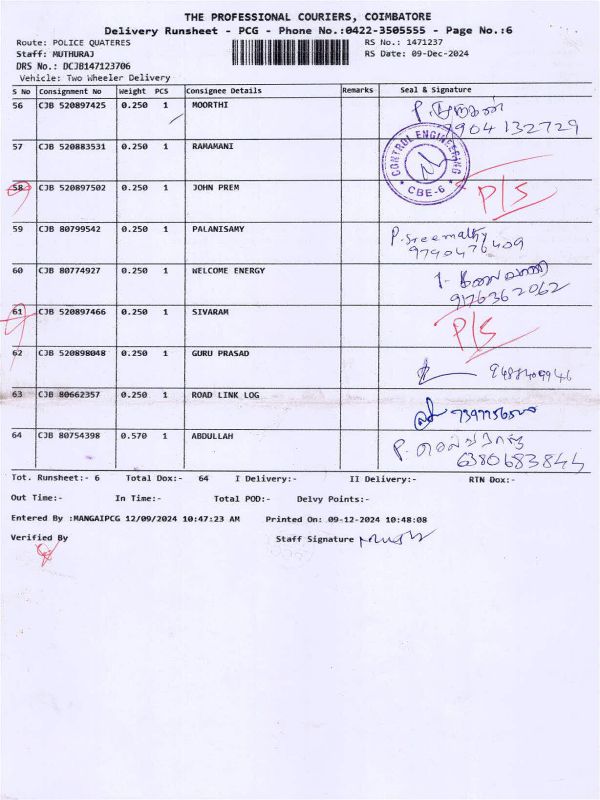 THE PROFESSIONAL COURIERS, COIMBATORE
Delivery Runsheet - PCG - Phone No.:0422-3505555 - Page No.:6
Route: POLICE QUATERES RS No.: 1471237
Staff: MUTHURAJ RS Date: 09-Dec-2024
DRS No.: DCJB147123706
Vehicle: Two Wheeler Delivery
S No Consignment No Weight PCS Consignee Details Remarks Seal & Signature
56 CJB 520897425 0.250 1 MOORTHI P. முருகன்
7904132729
57 CJB 520883531 0.250 1 RAMAMANI CONTROL ENGINEERING
CBE-6
58 CJB 520897502 0.250 1 JOHN PREM P/S
59 CJB 80799542 0.250 1 PALANISAMY P. Sreemathy
9790476409
60 CJB 80774927 0.250 1 WELCOME ENERGY
9176362062
61 CJB 520897466 0.250 1 SIVARAM P/S
62 CJB 520898048 0.250 1 GURU PRASAD
63 CJB 80662357 0.250 1 ROAD LINK LOG
64 CJB 80754398 0.570 1 ABDULLAH P.
6380683844
Tot. Runsheet:- 6 Total Dox:- 64 I Delivery:- II Delivery:- RTN Dox:-
Out Time:- In Time:- Total POD:- Delvy Points:-
Entered By :MANGAIPCG 12/09/2024 10:47:23 AM Printed On: 09-12-2024 10:48:08
Verified By Staff Signature